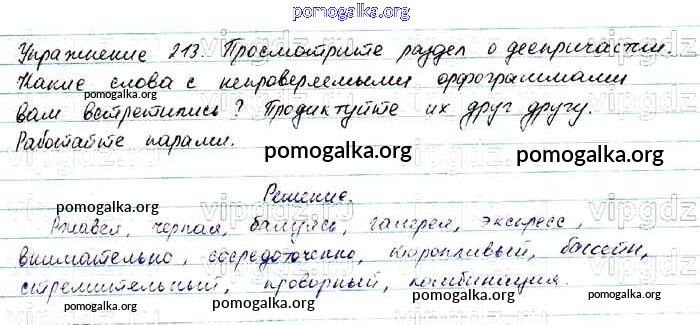 pomogalka.org
Упражнение 213. Просмотрите раздел о деепричастии.
Какие слова с непроверяемыми орфограммами
pomogalka.org
вам встретились? Продиктуйте их друг другу.
Работайте парами.
pomogalka.org pomogalka.org
Решение.
pomogalka.org
черпая, балуясь, галерея, экспресс,
внимательно, сосредоточенно, торопливый, бассейн,
стремительный, проворный, комбинация.
pomogalka.org pomogalka.org